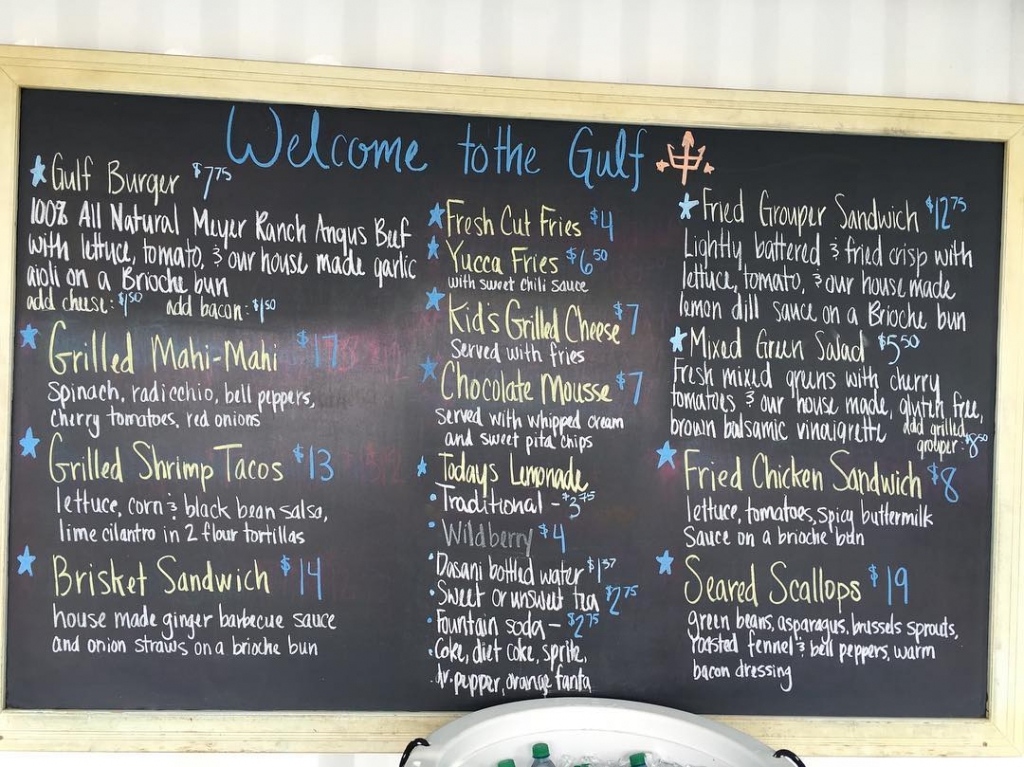 Welcome to the Gulf
Gulf Burger $7.75
100% All Natural Meyer Ranch Angus Beef
with lettuce, tomato, & our house made garlic
aioli on a Brioche bun
add cheese: $1.50 add bacon: $1.50
Grilled Mahi-Mahi $17
Spinach, radicchio, bell peppers,
cherry tomatoes, red onions
Grilled Shrimp Tacos $13
lettuce, corn & black bean salsa,
lime cilantro in 2 flour tortillas
Brisket Sandwich $14
house made ginger barbecue sauce
and onion straws on a brioche bun
Fresh Cut Fries $4
Yucca Fries $6.50
with sweet chili sauce
Kid's Grilled Cheese $7
Served with fries
Chocolate Mousse $7
Served with whipped cream
and sweet pita chips
Todays Lemonade
• Traditional - $3.75
• Wildberry $4
• Dasani bottled water $1.37
• Sweet or unsweet tea $2.75
• Fountain soda - $2.75
• Coke, diet coke, sprite,
• dr. pepper, orange fanta
Fried Grouper Sandwich $12.75
Lightly battered & fried crisp with
lettuce, tomato, & our house made
lemon dill sauce on a Brioche bun
Mixed Green Salad $5.50
Fresh mixed greens with cherry
tomatoes & our house made, gluten free,
brown balsamic vinaigrette add grilled
grouper: $8.50
Fried Chicken Sandwich $8
lettuce, tomatoes, spicy buttermilk
Sauce on a brioche bun
Seared Scallops $19
green beans, asparagus, brussels sprouts,
roasted fennel & bell peppers, warm
bacon dressing